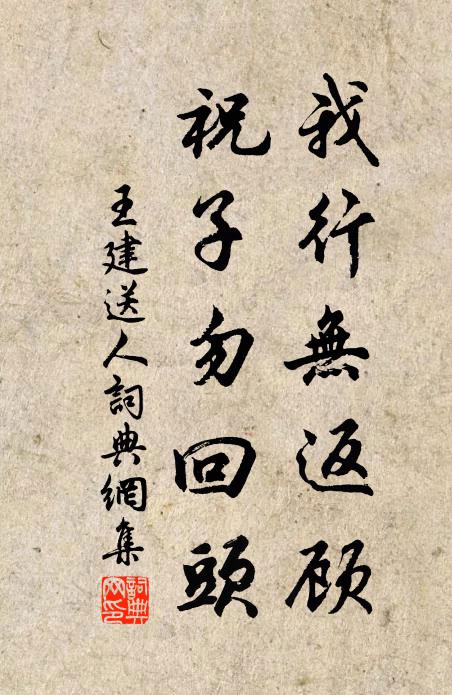 我行無返顾
祝子勿回頭
王建送人詞典網集
詞典网印